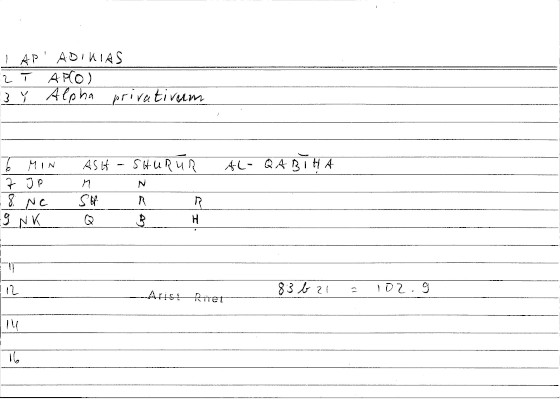 1 AP' ADIKIAS
2 T AP(O)
3 Y Alpha privativum
6 MIN ASH-SHURŪR AL-QABĪḤA
7 JP M N
8 NC SH R R
9 NK Q B Ḥ
11
12 Arist Rhet 83b21 = 102.9
14
16